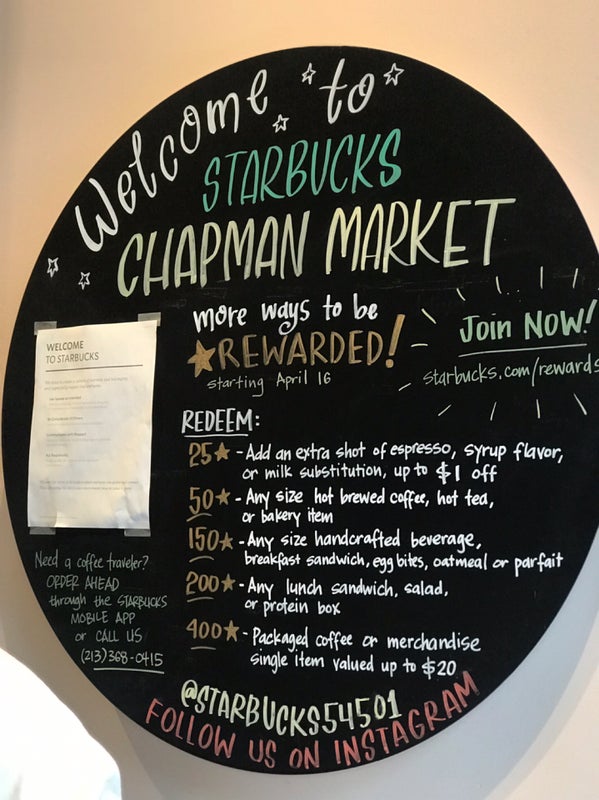 Welcome to
STARBUCKS
CHAPMAN MARKET
more ways to be
REWARDED!
starting April 16
Join NOW!
starbucks.com/rewards
WELCOME
TO STARBUCKS
REDEEM:
25★ - Add an extra shot of espresso, syrup flavor,
or milk substitution, up to $1 off
50★ - Any size hot brewed coffee, hot tea,
or bakery item
150★ - Any size handcrafted beverage,
breakfast sandwich, egg bites, oatmeal or parfait
200★ - Any lunch sandwich, salad,
or protein box
400★ - Packaged coffee or merchandise
single item valued up to $20
Need a coffee traveler?
ORDER AHEAD
through the STARBUCKS
MOBILE APP
or CALL US
(213)368-0415
@STARBUCKS54501
FOLLOW US ON INSTAGRAM